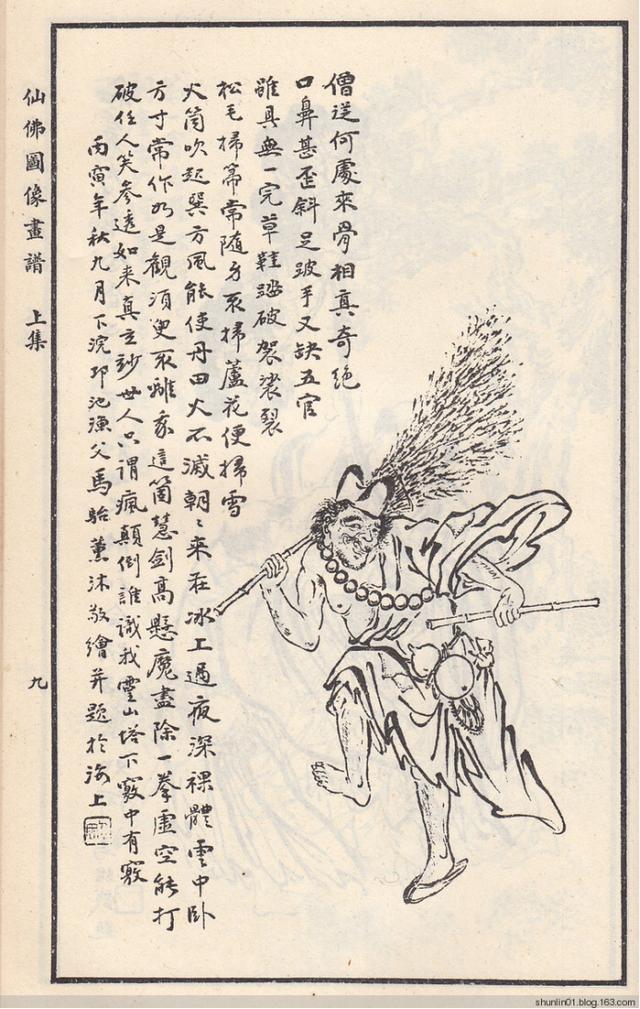 僧從何處來骨相真奇絕
口鼻甚歪斜足跛手又缺五官
雖具無一完草鞋踏破袈裟裂
松毛掃帚常隨身不掃蘆花便掃雪
火筒吹起巽方風能使丹田火不滅朝〻來在冰上過夜深裸體雲中卧
方寸常作如是觀須臾不離這箇慧劍高懸魔盡除一拳虛空能打
破任人笑參透如來真玄妙世人只謂瘋顛倒誰識我靈山塔下竅中有竅
丙寅年秋九月下浣池漁父馬駘薰沐敬繪并題於海上
仙佛圖像畫譜 上集
九
shunlin01.blog.163.com